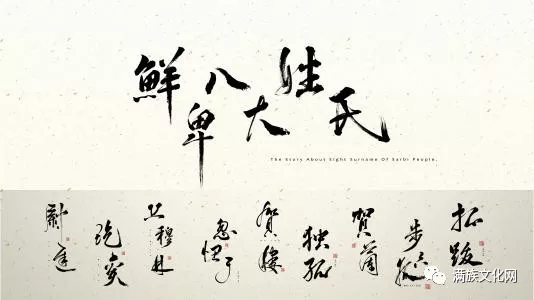 鮮卑八大姓氏
The Story About Eight Surname Of Sarbi People.
拓跋
步六孤
賀蘭
独孤
賀樓
忽忸于
丘穆林
纥奚
尉遲
满族文化网